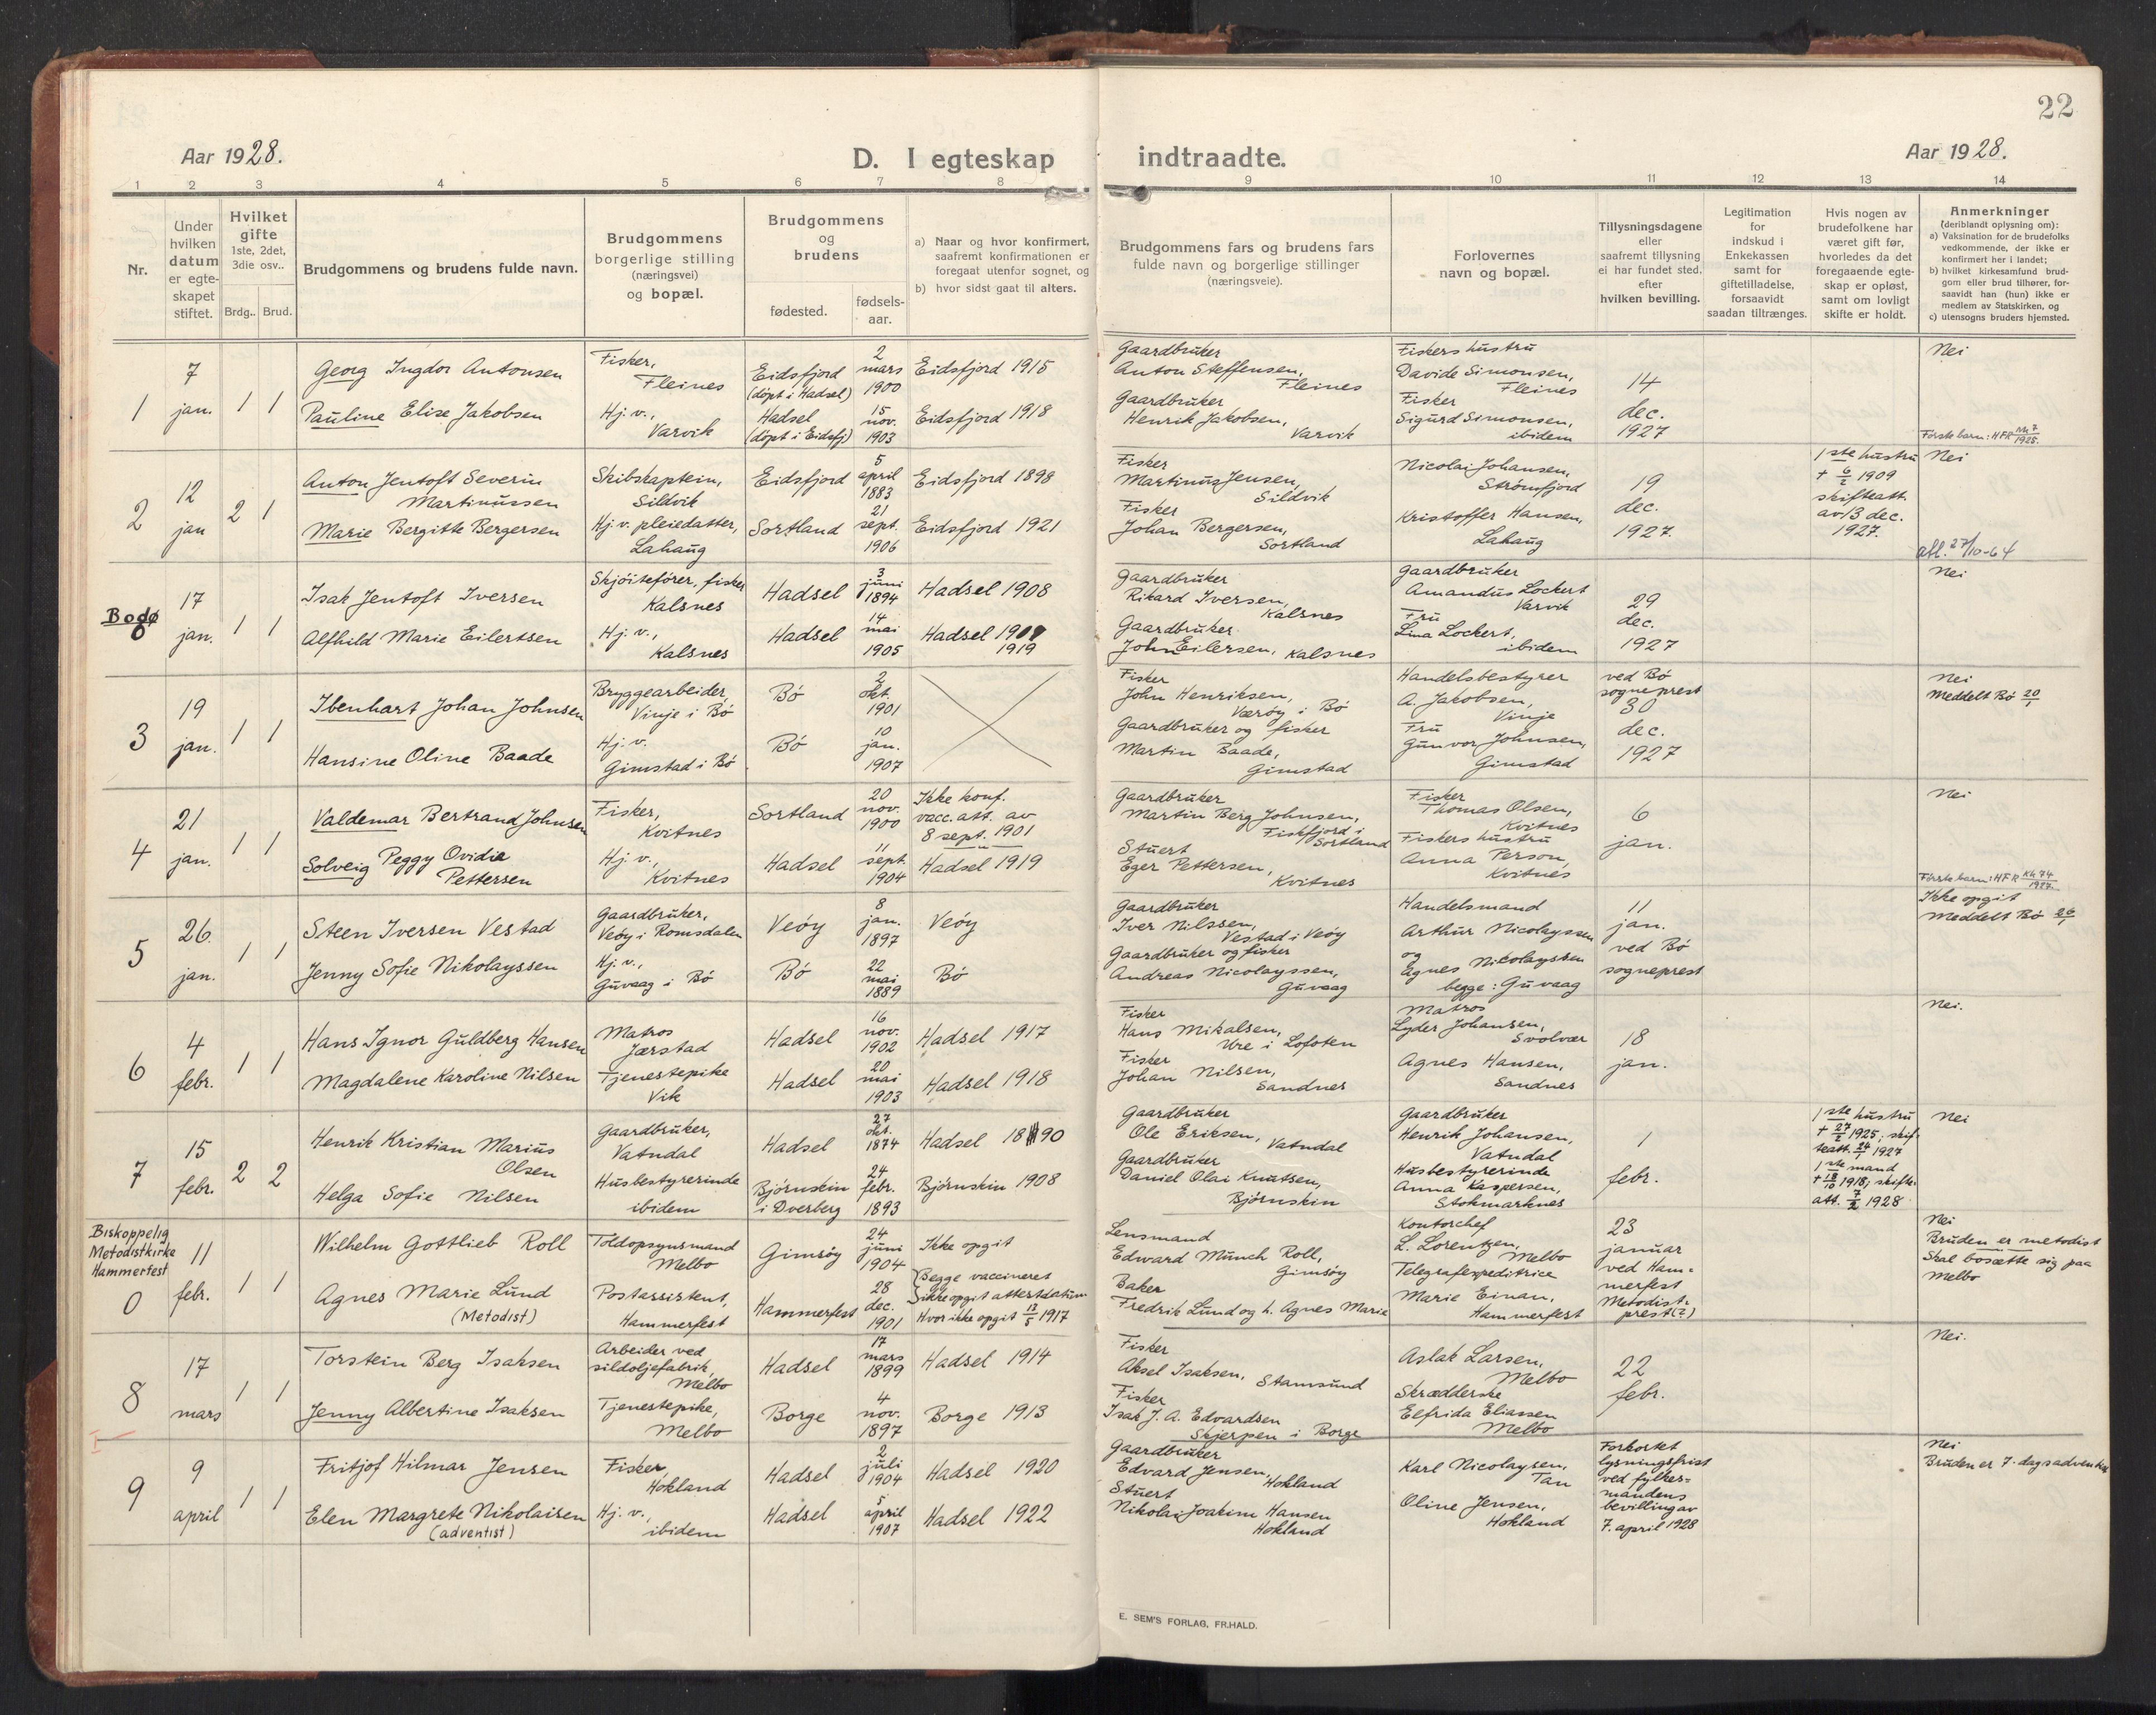 22
Aar 1928.
D. I egteskap indtraadte.
Aar 1928.
1 2 3 4 5 6 7 8 9 10 11 12 13 14
Nr.
Under hvilken datum er egte-skapet stiftet.
Hvilket gifte 1ste, 2det, 3die osv..
Brdg.. Brud.
Brudgommens og brudens fulde navn.
Brudgommens borgerlige stilling (næringsvei) og bopæl.
Brudgommens og brudens
fødested.
fødsels-aar.
a) Naar og hvor konfirmert, saafremt konfirmationen er foregaat utenfor sognet, og
b) hvor sidst gaat til alters.
Brudgommens fars og brudens fars fulde navn og borgerlige stillinger (næringsveie).
Forlovernes navn og bopæl.
Tillysningsdagene eller saafremt tillysning ei har fundet sted. efter hvilken bevilling.
Legitimation for indskud i Enkekassen samt for giftetilladelse, forsaavidt saadan tiltrænges.
Hvis nogen av brudefolkene har været gift før, hvorledes da det foregaaende egte-skap er opløst, samt om lovligt skifte er holdt.
Anmerkninger (deriblandt oplysning om):
a) Vaksination for de brudefolks vedkommende, der ikke er konfirmert her i landet;
b) hvilket kirkesamfund brud-gom eller brud tilhører, for-saavidt han (hun) ikke er medlem av Statskirken, og
c) utensogns bruders hjemsted.
1
7 jan.
1 1
Georg Ingdor Antonsen
Fisker, Fleines
Eidsfjord (döpt i Hadsel)
2 mars 1900
Eidsfjord 1915
Pauline Elise Jakobsen
Hj. v., Varvik
Hadsel (döpt i Eidsfj)
15 nov. 1903
Eidsfjord 1918
Gaardbruker Anton Steffensen, Fleines
Gaardbruker Henrik Jakobsen, Varvik
Fiskers hustru Davide Simonsen, Fleines
Fisker Sigurd Simonsen, ibidem
14 dec. 1927
Nei
Förste barn: HFR Nk 7 1925.
2
12 jan
2 1
Anton Jentoft Severin Martinussen
Skibskaptein, Sildvik
Eidsfjord
5 april 1883
Eidsfjord 1898
Marie Bergitte Bergersen
Hj. v. pleiedatter, Lahaug
Sortland
21 sept. 1906
Eidsfjord 1921
Fisker Martinus Jensen, Sildvik
Fisker Johan Bergersen, Sortland
Nicolai Johansen, Strömfjord
Kristoffer Hansen, Lahaug
19 dec. 1927.
1 ste hustru + 6/2 1909 skifteatt. av 13 dec. 1927.
Nei
att. 27/10-64
Bodø
0
17 jan.
1 1
Isak Jentoft Iversen
Skjöitefører, fisker Kalsnes
Hadsel
3 juni 1894
Hadsel 1908
Alfhild Marie Eilertsen
Hj. v., Kalsnes
Hadsel
14 mai 1905
Hadsel 1919
Gaardbruker Rikard Iversen, Kalsnes
Gaardbruker John Eilersen, Kalsnes
Gaardbruker Amandus Lockert Varvik
Fru Lina Lockert, ibidem
29 dec. 1927
Nei
3
19 jan.
1 1
Ibenhart Johan Johnsen
Bryggearbeider, Vinje i Bö
Bö
2 okt. 1901
Hansine Oline Baade
Hj. v. Gimstad i Bö
Bö
10 jan. 1907
Fisker John Henriksen, Værøy i Bö
Gaardbruker og fisker Martin Baade, Gimstad
Handelsbestyrer A. Jakobsen, Vinje
Fru Gunvor Johnsen, Gimstad
ved Bö sogneprest 30 dec. 1927
Nei
Meddelt Bö 20/1
4
21 jan.
1 1
Valdemar Bertrand Johnsen
Fisker, Kvitnes
Sortland
20 nov. 1900
Ikke konf. vacc. att. av 8 sept. 1901
Solveig Peggy Ovidie Pettersen
Hj. v., Kvitnes
Hadsel
11 sept. 1904
Hadsel 1919
Gaardbruker Martin Berg Johnsen, Fiskfjord i Sortland
Stuert Eger Pettersen, Kvitnes
Fisker Thomas Olsen, Kvitnes
Fiskers hustru Anna Person, Kvitnes
6 jan.
Nei
Förste barn: HFR Kk 74 1927.
5
26. jan.
1 1
Steen Iversen Vestad
Gaardbruker, Veöy i Romsdalen
Veöy
8 jan. 1897
Veöy
Jenny Sofie Nikolayssen
Hj. v., Guvaag i Bö
Bö
22 mai 1889
Bö
Gaardbruker Iver Nilssen, Vestad i Veöy
Gaardbruker og fisker Andreas Nicolayssen, Guvaag
Handelsmand Arthur Nicolayssen og Agnes Nicolayssen begge: Guvaag
11 jan. ved Bö sogneprest
Ikke opgit
Meddelt Bö 26/1
6
4 febr.
1 1
Hans Ignor Guldberg Hansen
Matros Jørstad
Hadsel
16 nov. 1902
Hadsel 1917
Magdalene Karoline Nilsen
Tjenestepike Vik
Hadsel
20 mai 1903
Hadsel 1918
Fisker Hans Mikalsen, Ure i Lofoten
Fisker Johan Nilsen, Sandnes
Matros Lyder Johansen, Svolvær
Agnes Hansen, Sandnes
18 jan.
Nei.
7
15 febr.
2 2
Henrik Kristian Marius Olsen
Gaardbruker, Vatndal
Hadsel
27 okt. 1874
Hadsel 1890
Helga Sofie Nilsen
Husbestyrerinde ibidem
Bjørnskin i Dverberg
24 febr. 1893
Bjørnskin 1908
Gaardbruker Ole Eriksen, Vatndal
Gaardbruker Daniel Olai Knutsen, Bjørnskin
Gaardbruker Henrik Johansen, Vatndal
Husbestyrerinde Anna Kaspersen, Stokmarknes
1 febr.
1 ste hustru + 27/2 1925; skif-teatt. 24/1 1927
1 ste mand + 18/10 1918; skifte-att. 7/2 1928
Nei
Biskoppelig Metodistkirke Hammerfest
0
11 febr.
1 1
Wilhelm Gottlieb Roll
Toldopsynsmand Melbo
Gimsøy
24 juni 1904
Ikke opgit
Agnes Marie Lund (Metodist)
Postassistent, Hammerfest
Hammerfest
28 dec. 1901
Begge vaccineret ikke opgit attestdatum
Hvor ikke opgit 13/5 1917
Lensmand Edward Münch Roll, Gimsöy
Baker Fredrik Lund og h. Agnes Marie
Kontorchef L. Lorentzen, Melbo
Telegrafexpeditrice Marie Einan, Hammerfest
23 januar ved Ham-merfest Metodist-prest (?)
Nei
Bruden er metodist
Skal bosætte sig paa Melbo
8
17 mars
1 1
Torstein Berg Isaksen
Arbeider ved sildoljefabrik, Melbo
Hadsel
17 mars 1899
Hadsel 1914
Jenny Albertine Isaksen
Tjenestepike, Melbo
Borge
4 nov. 1897
Borge 1913
Fisker Aksel Isaksen, Stamsund
Fisker Isak J. A. Edvardsen Skjerpen i Borge
Aslak Larsen, Melbo
Skrædderske Elfrida Eliassen Melbo
22 febr.
Nei.
9
9 april
1 1
Fritjof Hilmar Jensen
Fisker, Hokland
Hadsel
2 juli 1904
Hadsel 1920
Elen Margrete Nikolaisen (adventist)
Hj. v., ibidem
Hadsel
5 april 1907
Hadsel 1922
Gaardbruker Edvard Jensen, Hokland
Stuert Nikolai Joakim Hansen Hokland
Karl Nicolaysen, Tan
Oline Jensen, Hokland
Forkortet lysningsfrist ved fylkes-mandens bevilling av 7. april 1928
Nei
Bruden er 7. dags adventist
E. SEM'S FORLAG, FR.HALD.